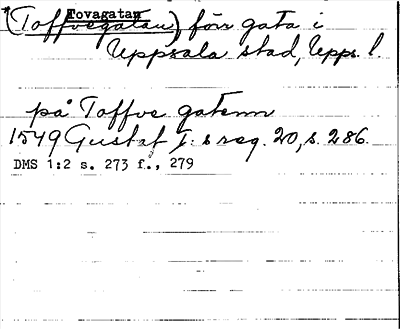 Tovagatan
*(Toffvegatan) förr gata i
Uppsala stad, Upps. l.
på Toffve gatenn
1549 Gustaf I:s reg. 20, s. 286.
DMS 1:2 s. 273 f., 279